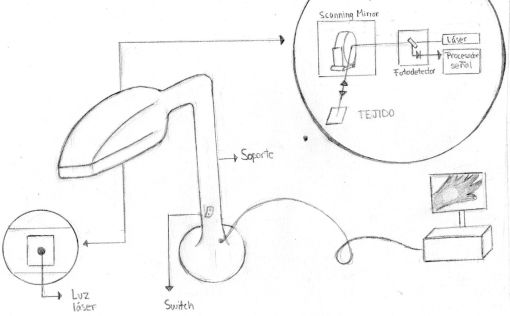 Scanning Mirror
Láser
Procesador
señal
Fotodetector
TEJIDO
Soporte
Luz
láser
Switch